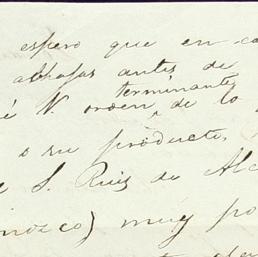 espero que en ca
alhajas antes de
terminante
é V. orden de lo
o su producto.
e S. Ruis de Alc
inozco) muy po